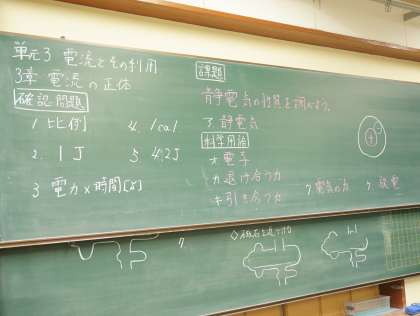 単元3 電流とその利用
3章 電流の正体
確認問題
1. 比例
2. 1J
3 電力×時間[s]
4. 1cal
5. 4.2J
課題
静電気の性質を調べよう。
ア 静電気
科学用語
オ 電子
カ 退け合う力
キ 引き合う力
ク 電気の力
ケ 放電